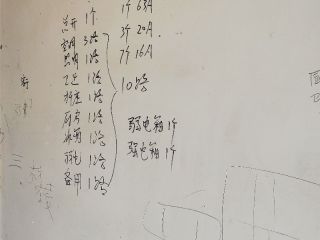 总开 1个
空调 3路
照明 1路
卫区 1路
插座 1路
厨房 1路
冰箱 1路
弱电 1路
备用 1路
1个 63A
3个 20A
7个 16A
10路
弱电箱 1个
强电箱 1个